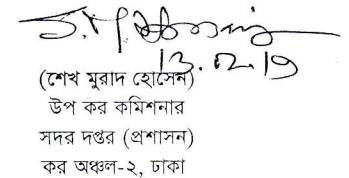 ১৩.০২.১৭
(শেখ মুরাদ হোসেন)
উপ কর কমিশনার
সদর দপ্তর (প্রশাসন)
কর অঞ্চল-২, ঢাকা